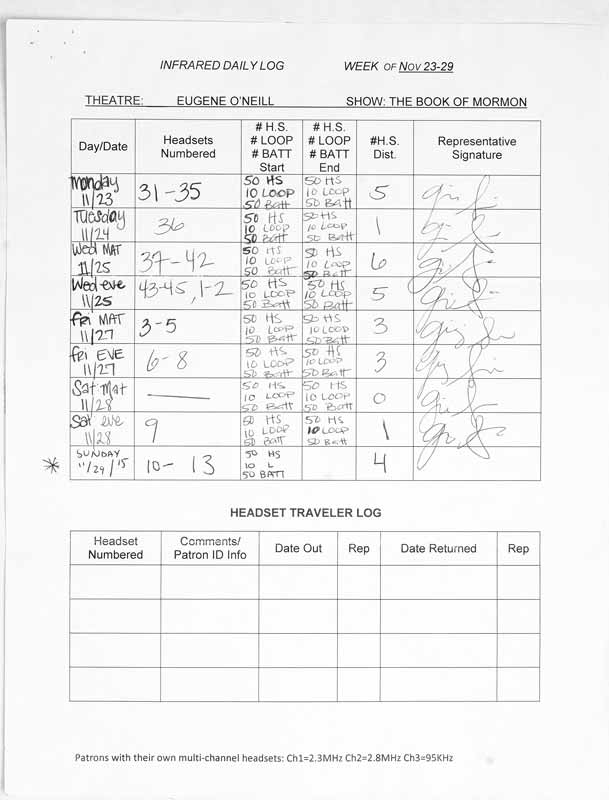 INFRARED DAILY LOG WEEK OF NOV 23-29
THEATRE: EUGENE O'NEILL SHOW: THE BOOK OF MORMON
Day/Date
Headsets
Numbered
# H.S.
# LOOP
# BATT
Start
# H.S.
# LOOP
# BATT
End
#H.S.
Dist.
Representative
Signature
Monday
11/23
31-35
50 HS
10 LOOP
50 Batt
50 HS
10 LOOP
50 Batt
5
Tuesday
11/24
36
50 HS
10 LOOP
50 Batt
50 HS
10 LOOP
50 Batt
1
Wed MAT
11/25
37-42
50 HS
10 LOOP
50 Batt
50 HS
10 LOOP
50 Batt
6
Wed eve
11/25
43-45, 1-2
50 HS
10 LOOP
50 Batt
50 HS
10 LOOP
50 Batt
5
Fri MAT
11/27
3-5
50 HS
10 LOOP
50 Batt
50 HS
10 LOOP
50 Batt
3
Fri EVE
11/27
6-8
50 HS
10 LOOP
50 Batt
50 HS
10 LOOP
50 Batt
3
Sat Mat
11/28
50 HS
10 LOOP
50 Batt
50 HS
10 LOOP
50 Batt
0
Sat eve
11/28
9
50 HS
10 LOOP
50 Batt
50 HS
10 LOOP
50 Batt
1
* SUNDAY
11/29/15
10-13
50 HS
10 L
50 BATT
4
HEADSET TRAVELER LOG
Headset
Numbered
Comments/
Patron ID Info
Date Out
Rep
Date Returned
Rep
Patrons with their own multi-channel headsets: Ch1=2.3MHz Ch2=2.8MHz Ch3=95KHz